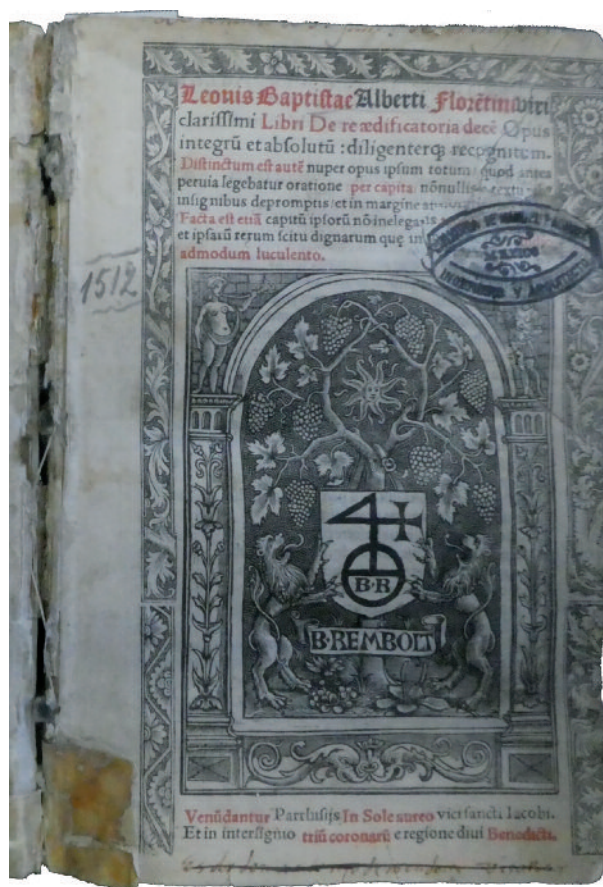 Leonis Baptistae Alberti Florētini viri
clarissimi Libri De re ædificatoria decē Opus
integrū et absolutū : diligenterq; recognitum.
Distinctum est autē nuper opus ipsum totum quod antea
peruia legebatur oratione per capita nōnullis
insignibus depromptis et in margine
Facta est etiā capitū ipsorū nō inelegans
et ipsarū rerum scitu dignarum quę in
admodum luculento.
1512
MEXICO
INGENIEROS Y ARQUITECTOS
B·R
B·REMBOLT
Venūdantur Parrhisijs In Sole aureo vici sancti Iacobi.
Et in intersignio triū coronarū e regione diui Benedicti.